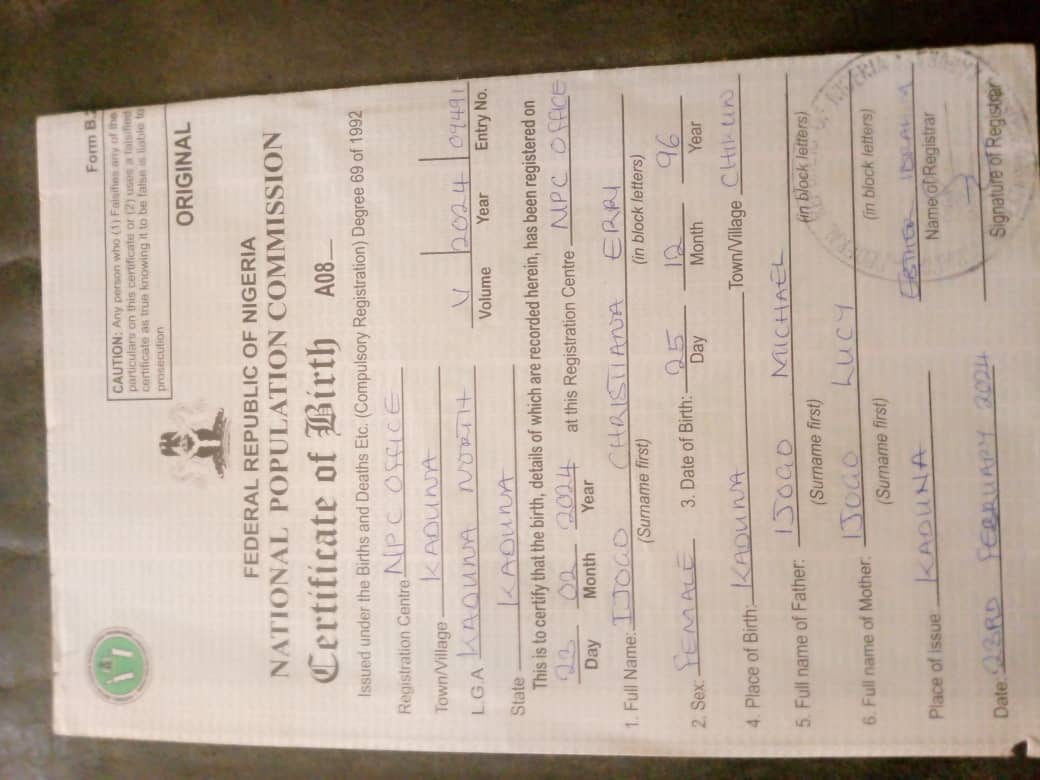 Form B.
CAUTION: Any person who (1) Falsifies any of the
particulars on this certificate or (2) uses a falsified
certificate as true knowing it to be false is liable to
prosecution
ORIGINAL
FEDERAL REPUBLIC OF NIGERIA
NATIONAL POPULATION COMMISSION
Certificate of Birth A08
Issued under the Births and Deaths Etc. (Compulsory Registration) Degree 69 of 1992
Registration Centre NPC OFFICE
Town/Village KADUNA
L.G.A KADUNA NORTH V 2024 09491
State KADUNA Volume Year Entry No.
This is to certify that the birth, details of which are recorded herein, has been registered on
23 02 2024 at this Registration Centre NPC OFFICE
Day Month Year
1. Full Name: IJOGO CHRISTIANA ERRY
(Surname first) (in block letters)
2. Sex: FEMALE 3. Date of Birth: 25 12 96
Day Month Year
4. Place of Birth: KADUNA Town/Village CHIKUN
5. Full name of Father: IJOGO MICHAEL
(Surname first) (in block letters)
6. Full name of Mother: IJOGO LUCY
(Surname first) (in block letters)
Place of Issue KADUNA
Name of Registrar
Date: 23RD FEBRUARY 2024
Signature of Registrar